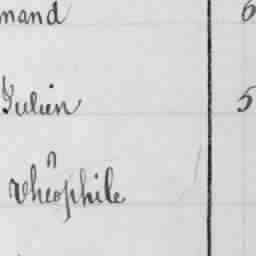 mand 6
Julien 5
Théophile